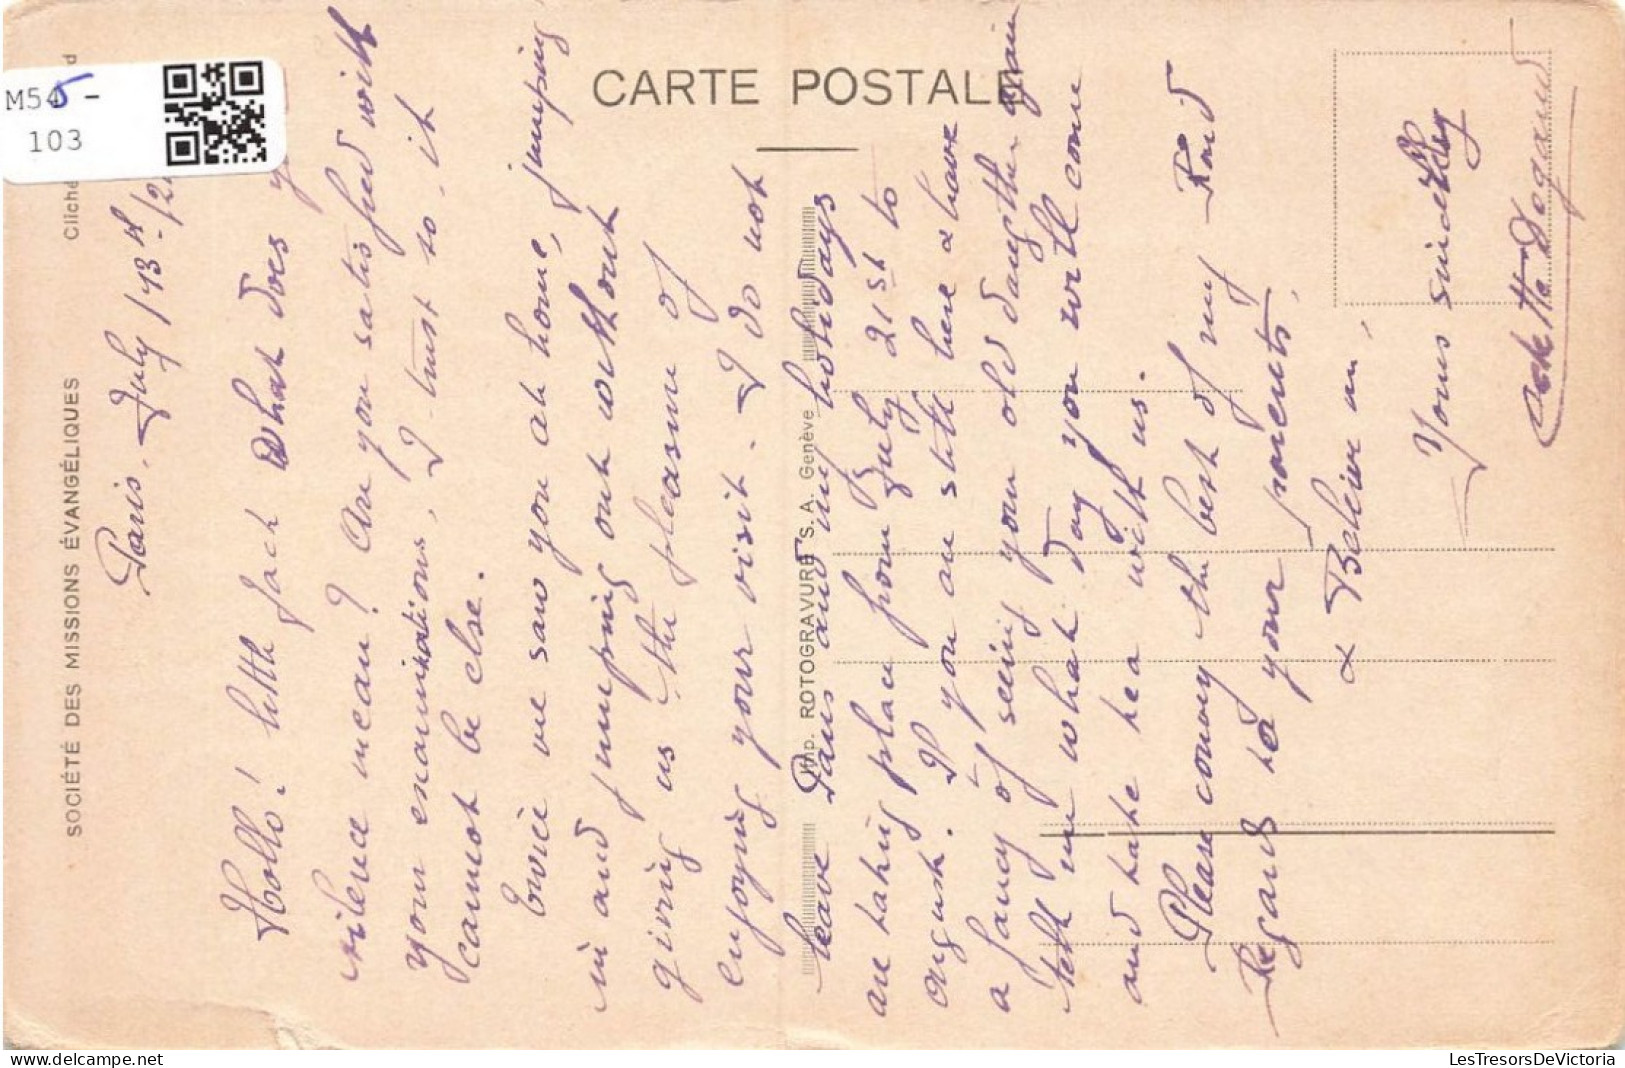 M545 -
103
CARTE POSTALE
SOCIÉTÉ DES MISSIONS ÉVANGÉLIQUES
Cliché
Imp. ROTOGRAVURE S. A. Genève
Paris, July 13th /2
Hollo! little Jack What does y
silence mean? Are you satisfied with
your examinations, I trust so, it
cannot be else.
Twice we saw you at home, jumping
in and jumping out without
giving us the pleasure of
enjoying your visit. I do not
leave Paris and my holidays
are taking place from July 21st to
August. If you are still here & have
a fancy of seeing your old daughter again
tell me what day you will come
and take tea with us.
Please convey the best of my kind
Regards to your parents,
& Believe me,
Yours sincerely